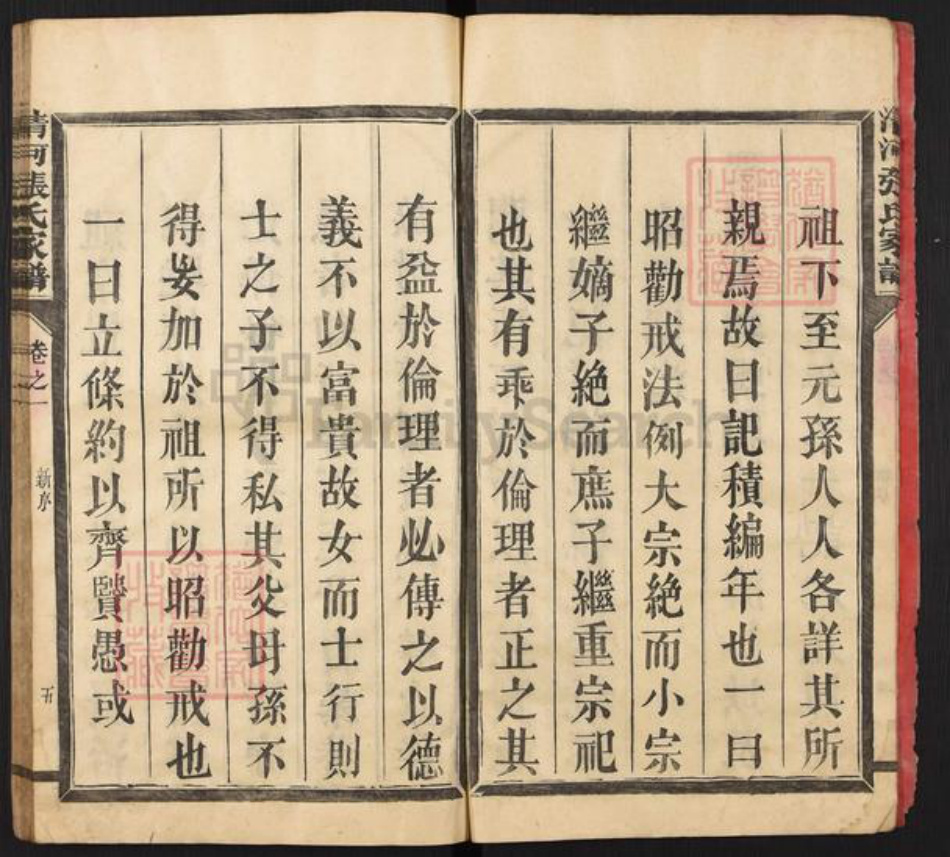 祖下至元孫人人各詳其所
親焉故曰記積編年也一曰
昭勸戒法例大宗絶而小宗
繼嫡子絶而庶子繼重宗祀
也其有乖於倫理者正之其
有益於倫理者必傳之以德
義不以富貴故女而士行則
士之子不得私其父母孫不
得妄加於祖所以昭勸戒也
一曰立條約以齊賢愚或
清河張氏家譜
卷之一
新序
五
清河張氏家譜
FamilySearch